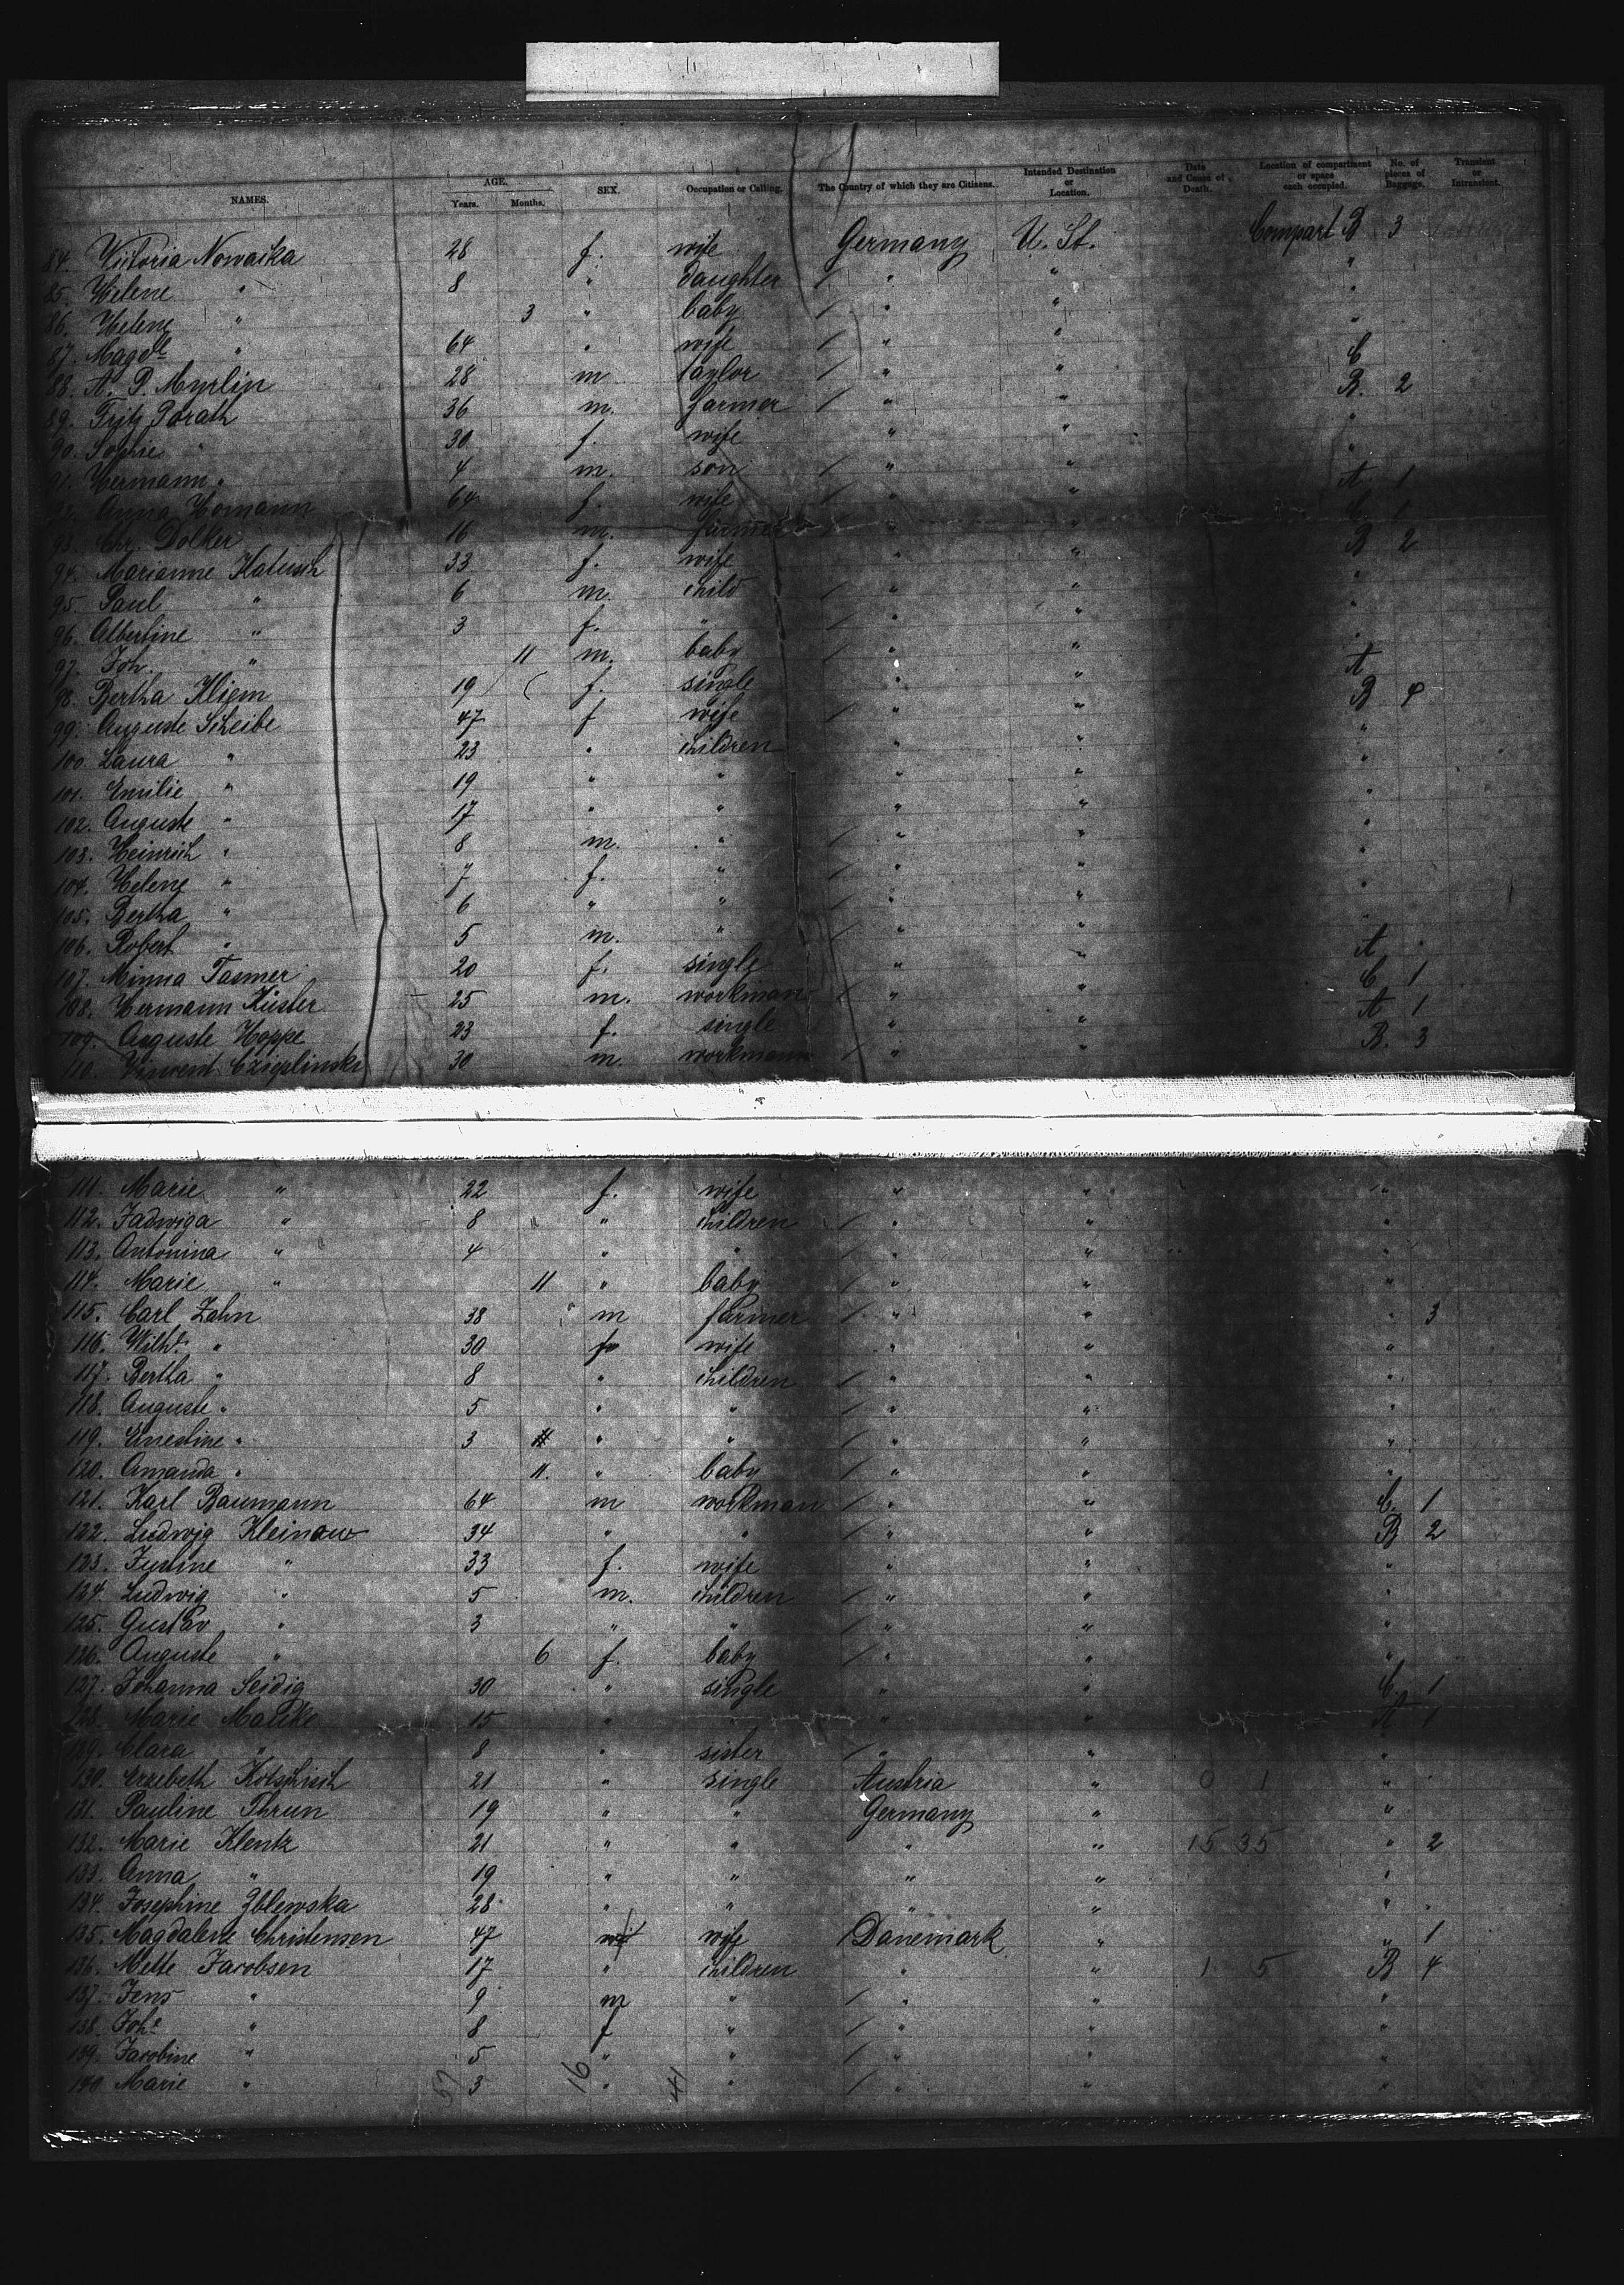 NAMES. AGE. Years. Months. SEX. Occupation or Calling. The Country of which they are Citizens. Intended Destination or Location. Date and Cause of Death. Location of compartment or space each occupied. No. of pieces of Baggage. Transient or Intransient.
84. Victoria Nowacka 28 f. wife Germany U. St. Compart B 3
85. Helene " 8 " daughter " " "
86. Helene " 3 " baby " " "
87. Magdl " 64 " wife " " "
88. A. P. Myrlin 28 m taylor " " C
89. Fritz Porath 36 m. farmer " " B. 2
90. Sophie " 30 f. wife " " "
91. Hermann " 4 m. son " " "
92. Anna Homann 64 f. wife " " A 1
93. Chr. Dolker 16 m. farmer " " C 1
94. Marianne Katusch 33 f. wife " " B 2
95. Paul " 6 m. child " " "
96. Albertine " 3 f. " " " "
97. Joh. " 11 m. baby " " "
98. Bertha Kliem 19 f. single " " A
99. Auguste Scheibe 47 f wife " " B 4
100. Laura " 23 " children " " "
101. Emilie " 19 " " " " "
102. Auguste " 17 " " " " "
103. Heinrich " 8 m. " " " "
104. Helene " 7 f. " " " "
105. Bertha " 6 " " " " "
106. Robert " 5 m. " " " "
107. Minna Tasmer 20 f. single " " A
108. Hermann Küster 25 m. workman " " C 1
109. Auguste Hoppe 23 f. single " " A 1
110. Vincent Czieplinski 30 m. workmann " " B. 3
111. Marie " 22 f. wife " " "
112. Jadwiga " 8 " children " " "
113. Antonina " 4 " " " " "
114. Marie " 11 " baby " " "
115. Carl Zahn 38 m farmer " " " 3
116. Wilhe " 30 f wife " " "
117. Bertha " 8 " children " " "
118. Auguste " 5 " " " " "
119. Ernestine " 3 " " " " "
120. Amanda " 11. " baby " " "
121. Karl Baumann 64 m workman " " C 1
122. Ludwig Kleinau 34 " " " " B 2
123. Justine " 33 f. wife " " "
124. Ludwig " 5 m. children " " "
125. Gustav " 3 " " " " "
126. Auguste " 6 f. baby " " "
127. Johanna Seidig 30 " single " " C. 1
128. Marie Malike 15 " " " " A 1
129. Clara " 8 " sister " " "
130. Erzebeth Kotschisch 21 " single Austria " 0 1 "
131. Pauline Thrun 19 " " Germany " "
132. Marie Klentz 21 " " " " 15 35 " 2
133. Anna " 19 " " " " "
134. Josephine Zblewska 28 " " " " "
135. Magdalene Christensen 47 wife Danemark " " 1
136. Mette Jacobsen 17 " children " " 1 5 B 4
137. Jens " 9 m " " " "
138. Johe " 8 f " " " "
139. Jacobine " 5 " " " " "
140. Marie " 3 " " " " "
57 16 41